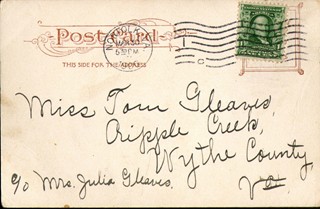 Post Card
THIS SIDE FOR THE ADDRESS
Miss Tom Gleaves,
Cripple Creek,
Wythe County,
c/o Mrs. Julia Gleaves. Va.